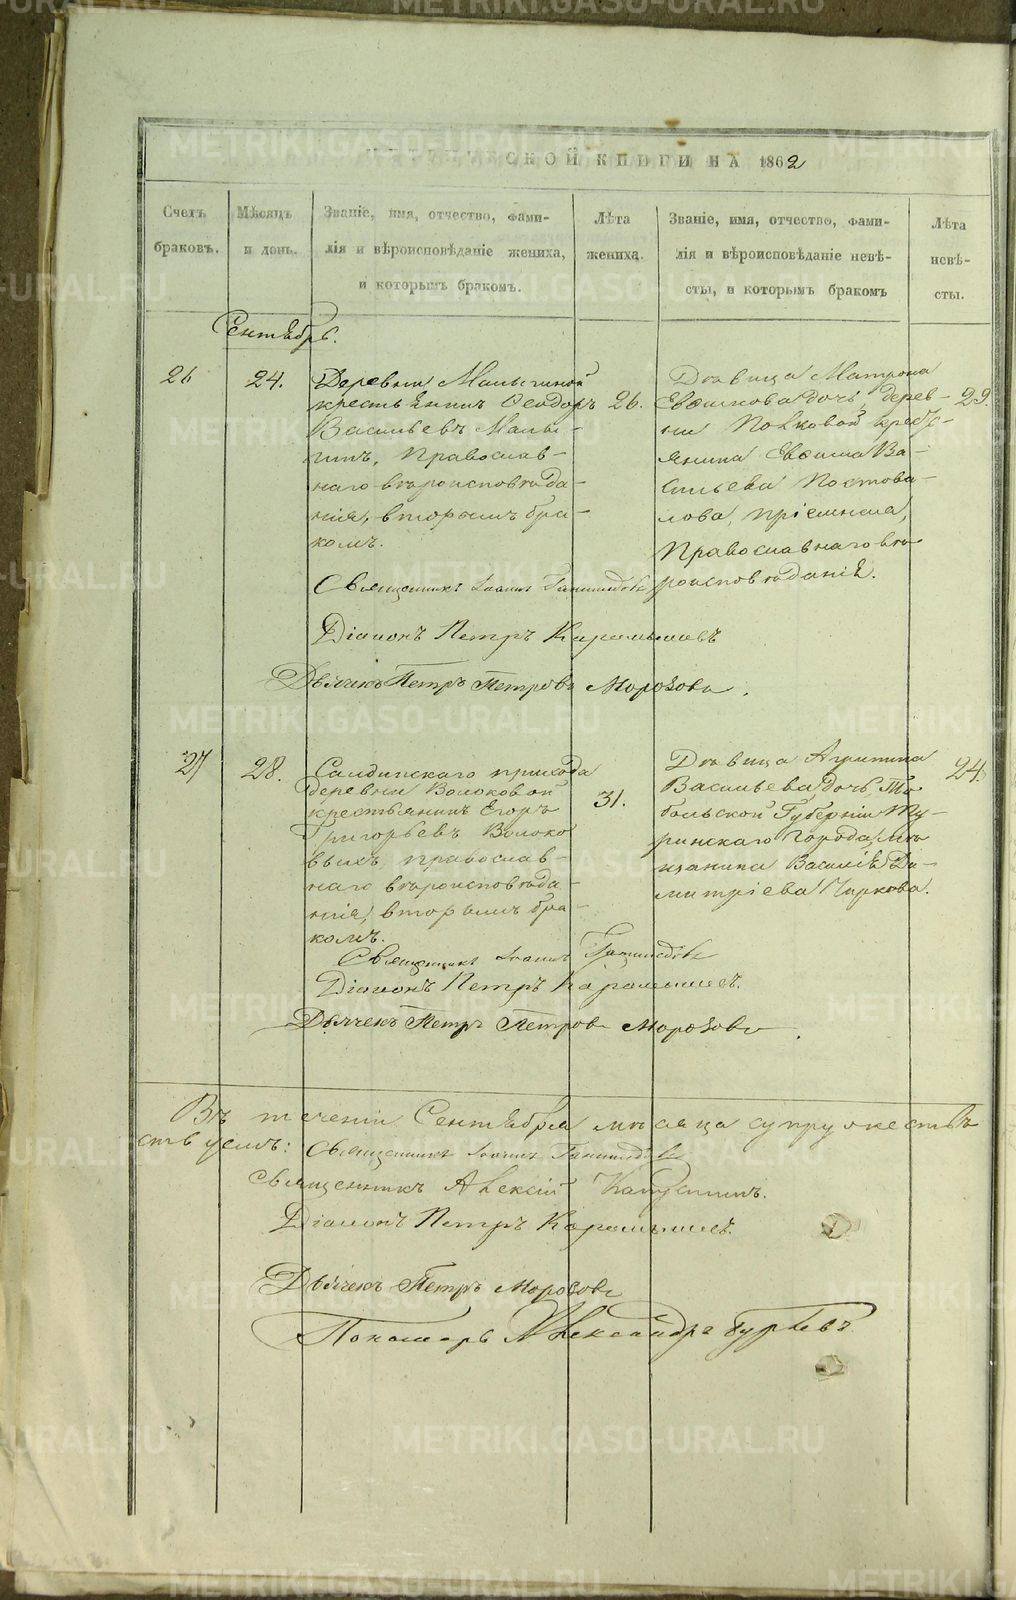 МЕТРИЧЕСКОЙ КНИГИ НА 1862
Счетъ браковъ.
Мѣсяцъ и день.
Званіе, имя, отчество, фами-
лія и вѣроисповѣданіе жениха,
и которымъ бракомъ.
Лѣта жениха.
Званіе, имя, отчество, фами-
лія и вѣроисповѣданіе невѣ-
сты, и которымъ бракомъ
Лѣта невѣ-
сты.
Сентябрь.
26
24.
Деревни Малыгиной
крестьянинъ Ѳеодоръ
Васильевъ Малы-
гинъ, Православ-
наго вѣроисповѣда-
нія, вторымъ бра-
комъ.
26.
Дѣвица Матрона
Евѳимова дочь, дерев-
ни кресть-
янина Евѳима Ва-
сильева Постова-
лова, пріемная,
Православнаго вѣ-
роисповѣданія.
29.
Священникъ Іоаннъ
Діаконъ Петръ Карамышевъ
Дьячекъ Петръ Петровъ Морозовъ.
27
28.
Салдинскаго прихода
деревни Волоковой
крестьянинъ Егоръ
Григорьевъ Волоко
выхъ, православ-
наго вѣроисповѣда-
нія, вторымъ бра-
комъ.
31.
Дѣвица Агрипина
Васильева дочь, То
больской Губерніи Ту-
ринскаго Города, мѣ
щанина Василія Ди-
митріева Чиркова.
24.
Священникъ Іоаннъ
Діаконъ Петръ Карамышевъ.
Дьячекъ Петръ Петровъ Морозовъ
Въ теченіи Сентября мѣсяца супружествъ
Священникъ Іоаннъ
Священникъ Алексій
Діаконъ Петръ Карамышевъ.
Дьячекъ Петръ Морозовъ
Пономарь Александръ Гурьевъ
METRIKI.GASO-URAL.RU